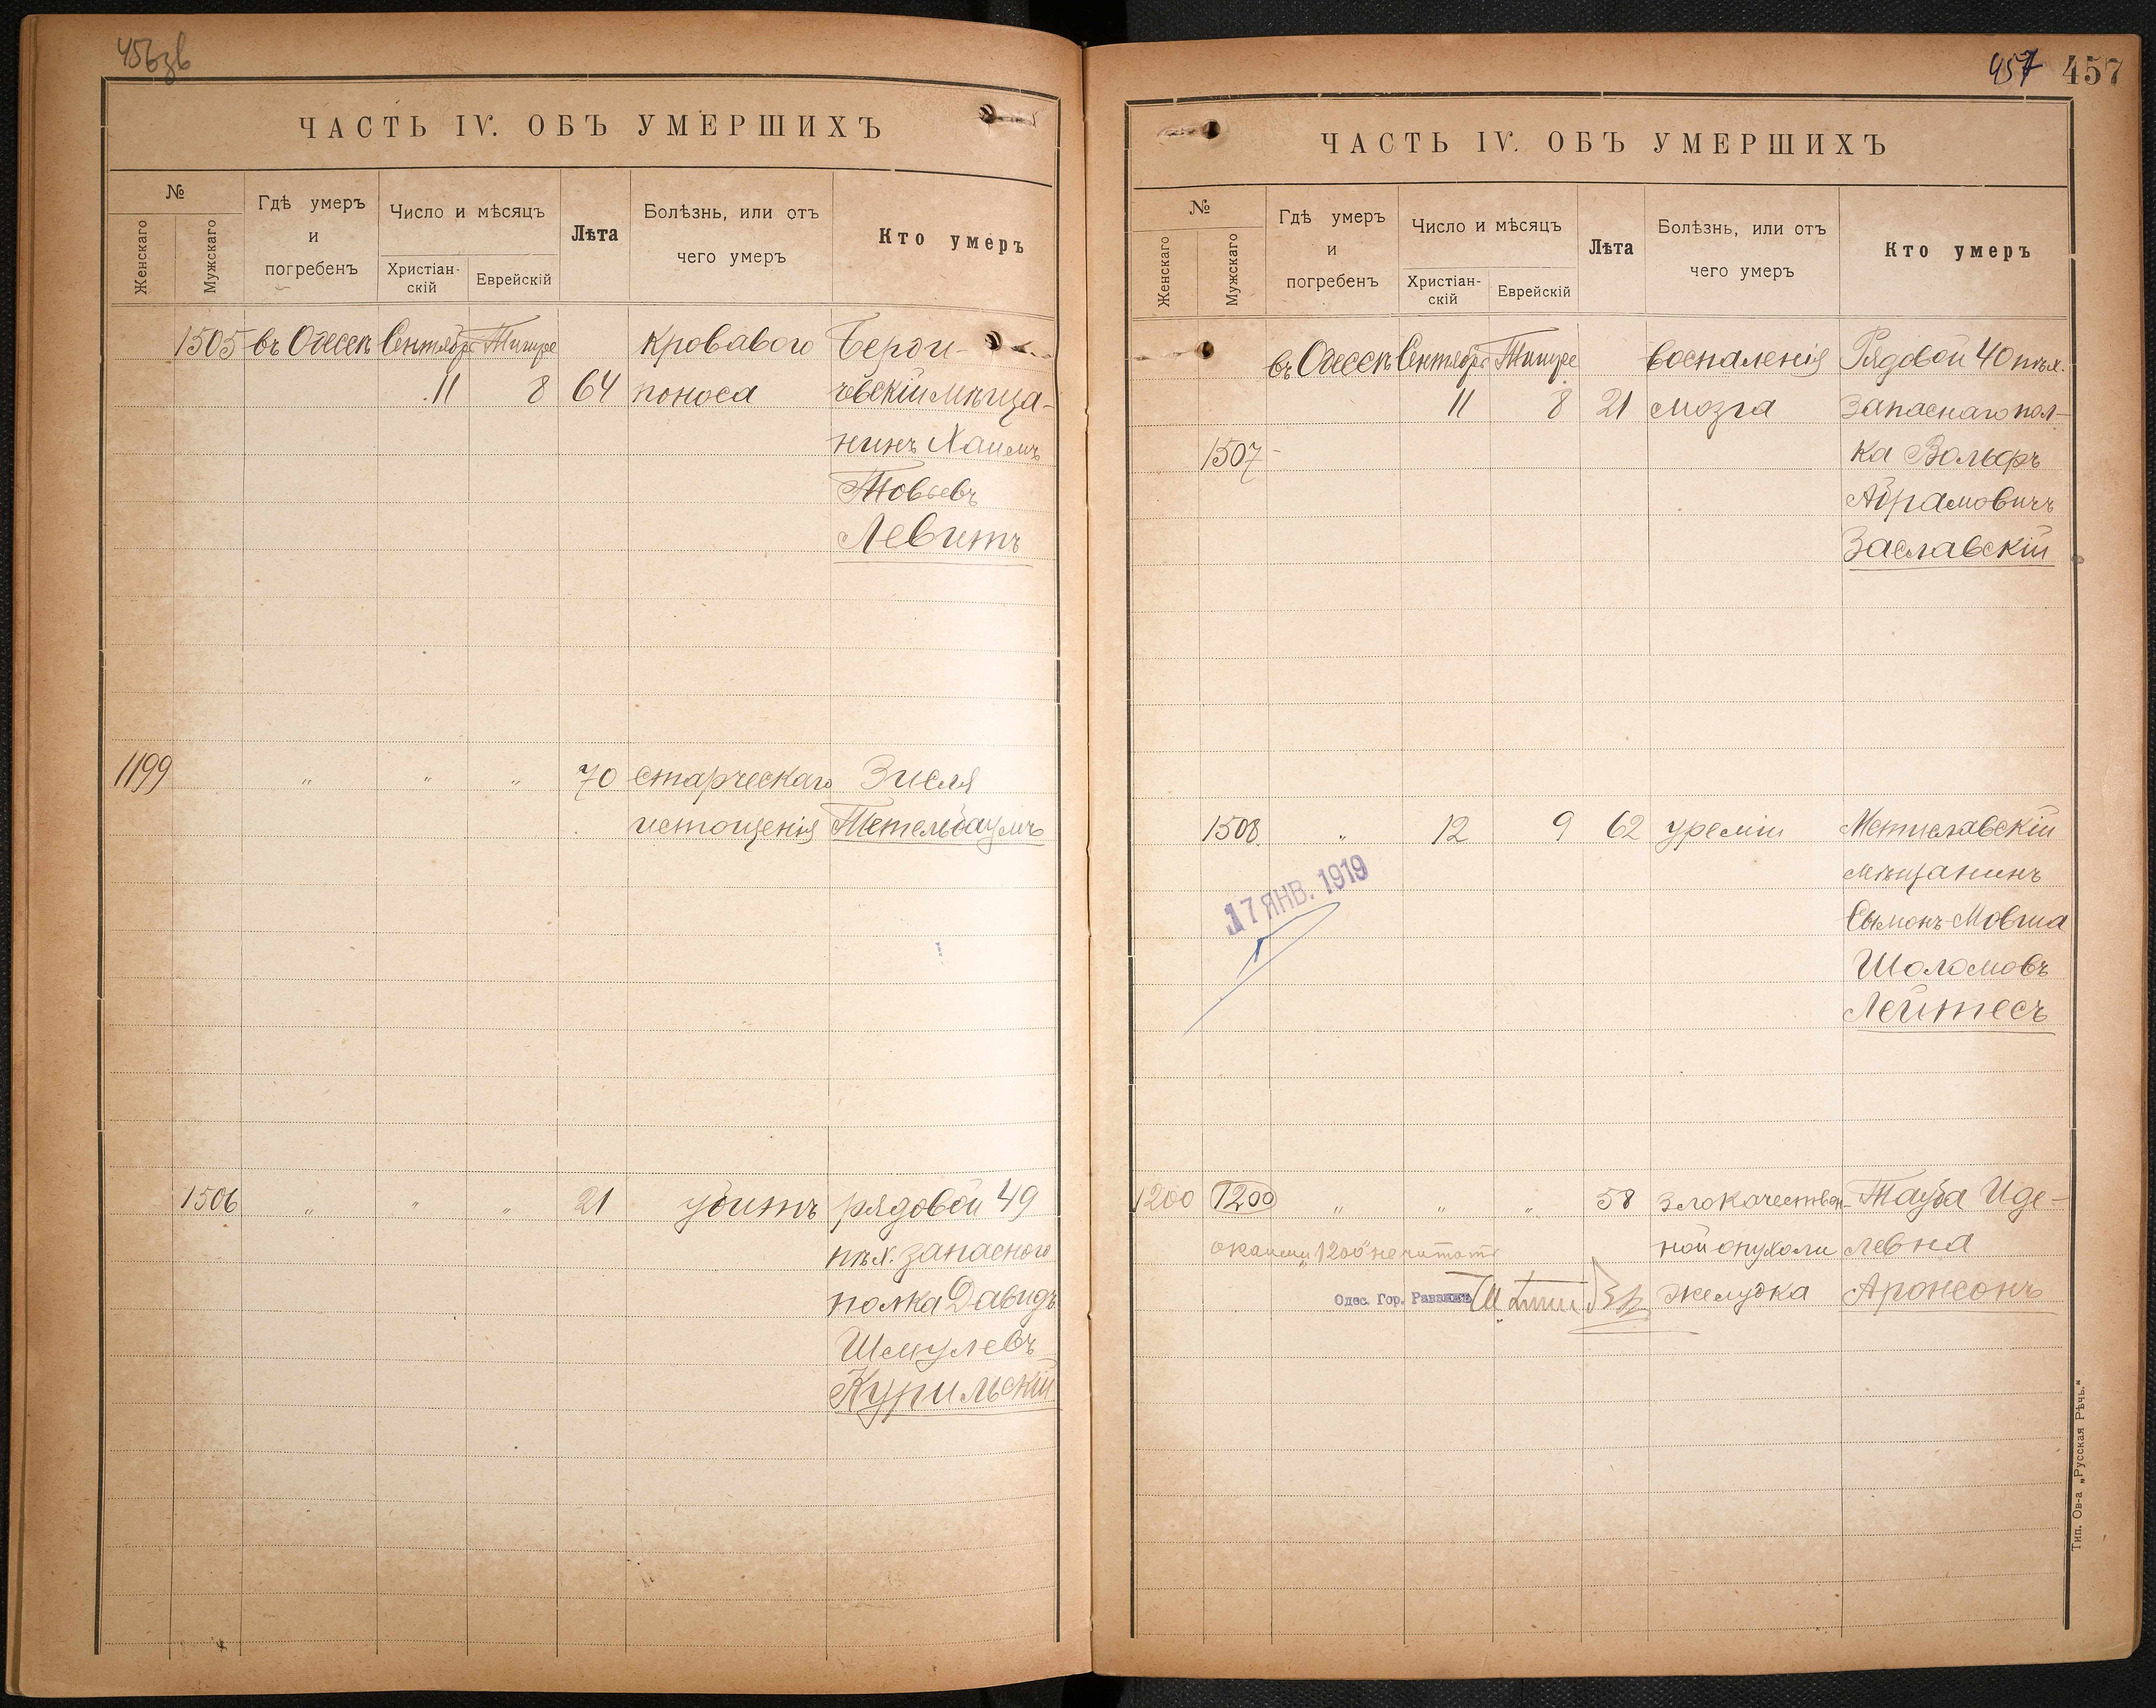 456зв
ЧАСТЬ IV. ОБЪ УМЕРШИХЪ
№
Женскаго
Мужскаго
Гдѣ умеръ
и
погребенъ
Число и мѣсяцъ
Христіан-
скій
Еврейскій
Лѣта
Болѣзнь, или отъ
чего умеръ
Кто умеръ
1505 въ Одессѣ Сентябрь Тишре кроваваго Берди-
11 8 64 поноса чевскій мѣща-
нинъ Хаимъ
Товьевъ
Левитъ
1199 " " " 70 старческаго Зисля
истощенія Тетельбаумъ
1506 " " " 21 убитъ рядовой 49
пѣх. запасного
полка Давидъ
Шмулевъ
Курильскій
457 457
ЧАСТЬ IV. ОБЪ УМЕРШИХЪ
№
Женскаго
Мужскаго
Гдѣ умеръ
и
погребенъ
Число и мѣсяцъ
Христіан-
скій
Еврейскій
Лѣта
Болѣзнь, или отъ
чего умеръ
Кто умеръ
въ Одессѣ Сентябрь Тишре воспаленія Рядовой 40 пѣх.
11 8 21 мозга Запаснаго пол-
1507 ка Вольфъ
Абрамовичъ
Заславскій
1508 " 12 9 62 уреміи Мстиславскій
мѣщанинъ
17 ЯНВ. 1919
Сымонъ-Мовша
Шоломовъ
Лейтесъ
1200 1200 " " " 58 злокачествен- Тауба Иде-
"1200" не читать ной опухоли левна
Одес. Гор. Раввинъ желудка Аронсонъ
Тип. Ов-а „Русская Рѣчь."